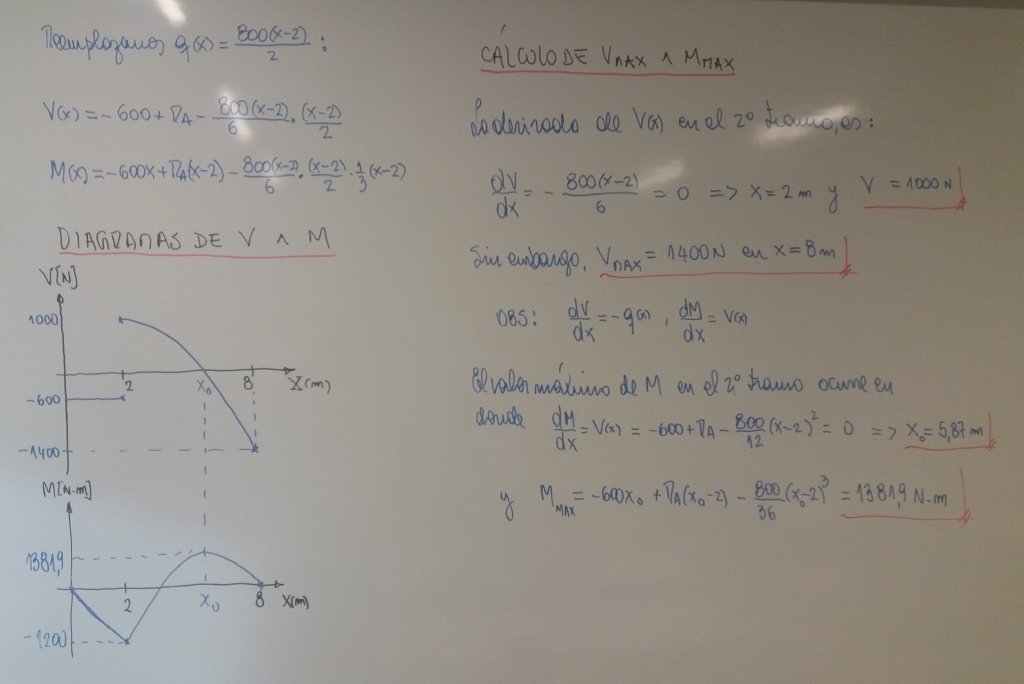 Reemplazamos q(x) = 800(x-2)/2 :
V(x) = -600 + RA - 800(x-2)/6 · (x-2)/2
M(x) = -600x + RA(x-2) - 800(x-2)/6 · (x-2)/2 · 1/3 (x-2)
DIAGRAMAS DE V ∧ M
V[N]
1000
2
X0
8
X(m)
-600
-1400
M[N-m]
1381,9
2
X0
8
X(m)
-1200
CÁLCULO DE VMAX ∧ MMAX
La derivada de V(x) en el 2º tramo, es:
dV/dx = - 800(x-2)/6 = 0 => x = 2 m y V = 1000 N
Sin embargo, VMAX = 1400 N en x = 8 m
OBS: dV/dx = -q(x) , dM/dx = V(x)
El valor máximo de M en el 2º tramo ocurre en
donde dM/dx = V(x) = -600 + RA - 800/12 (x-2)² = 0 => X0 = 5,87 m
y MMAX = -600x0 + RA(x0-2) - 800/36 (x0-2)³ = 1381,9 N-m